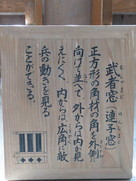 武者窓（連子窓）
正方形の角材の角を外側に
向け並べて、外からは内が見
えにくく、内からは広角に敵
兵の動きを見る
ことができる。